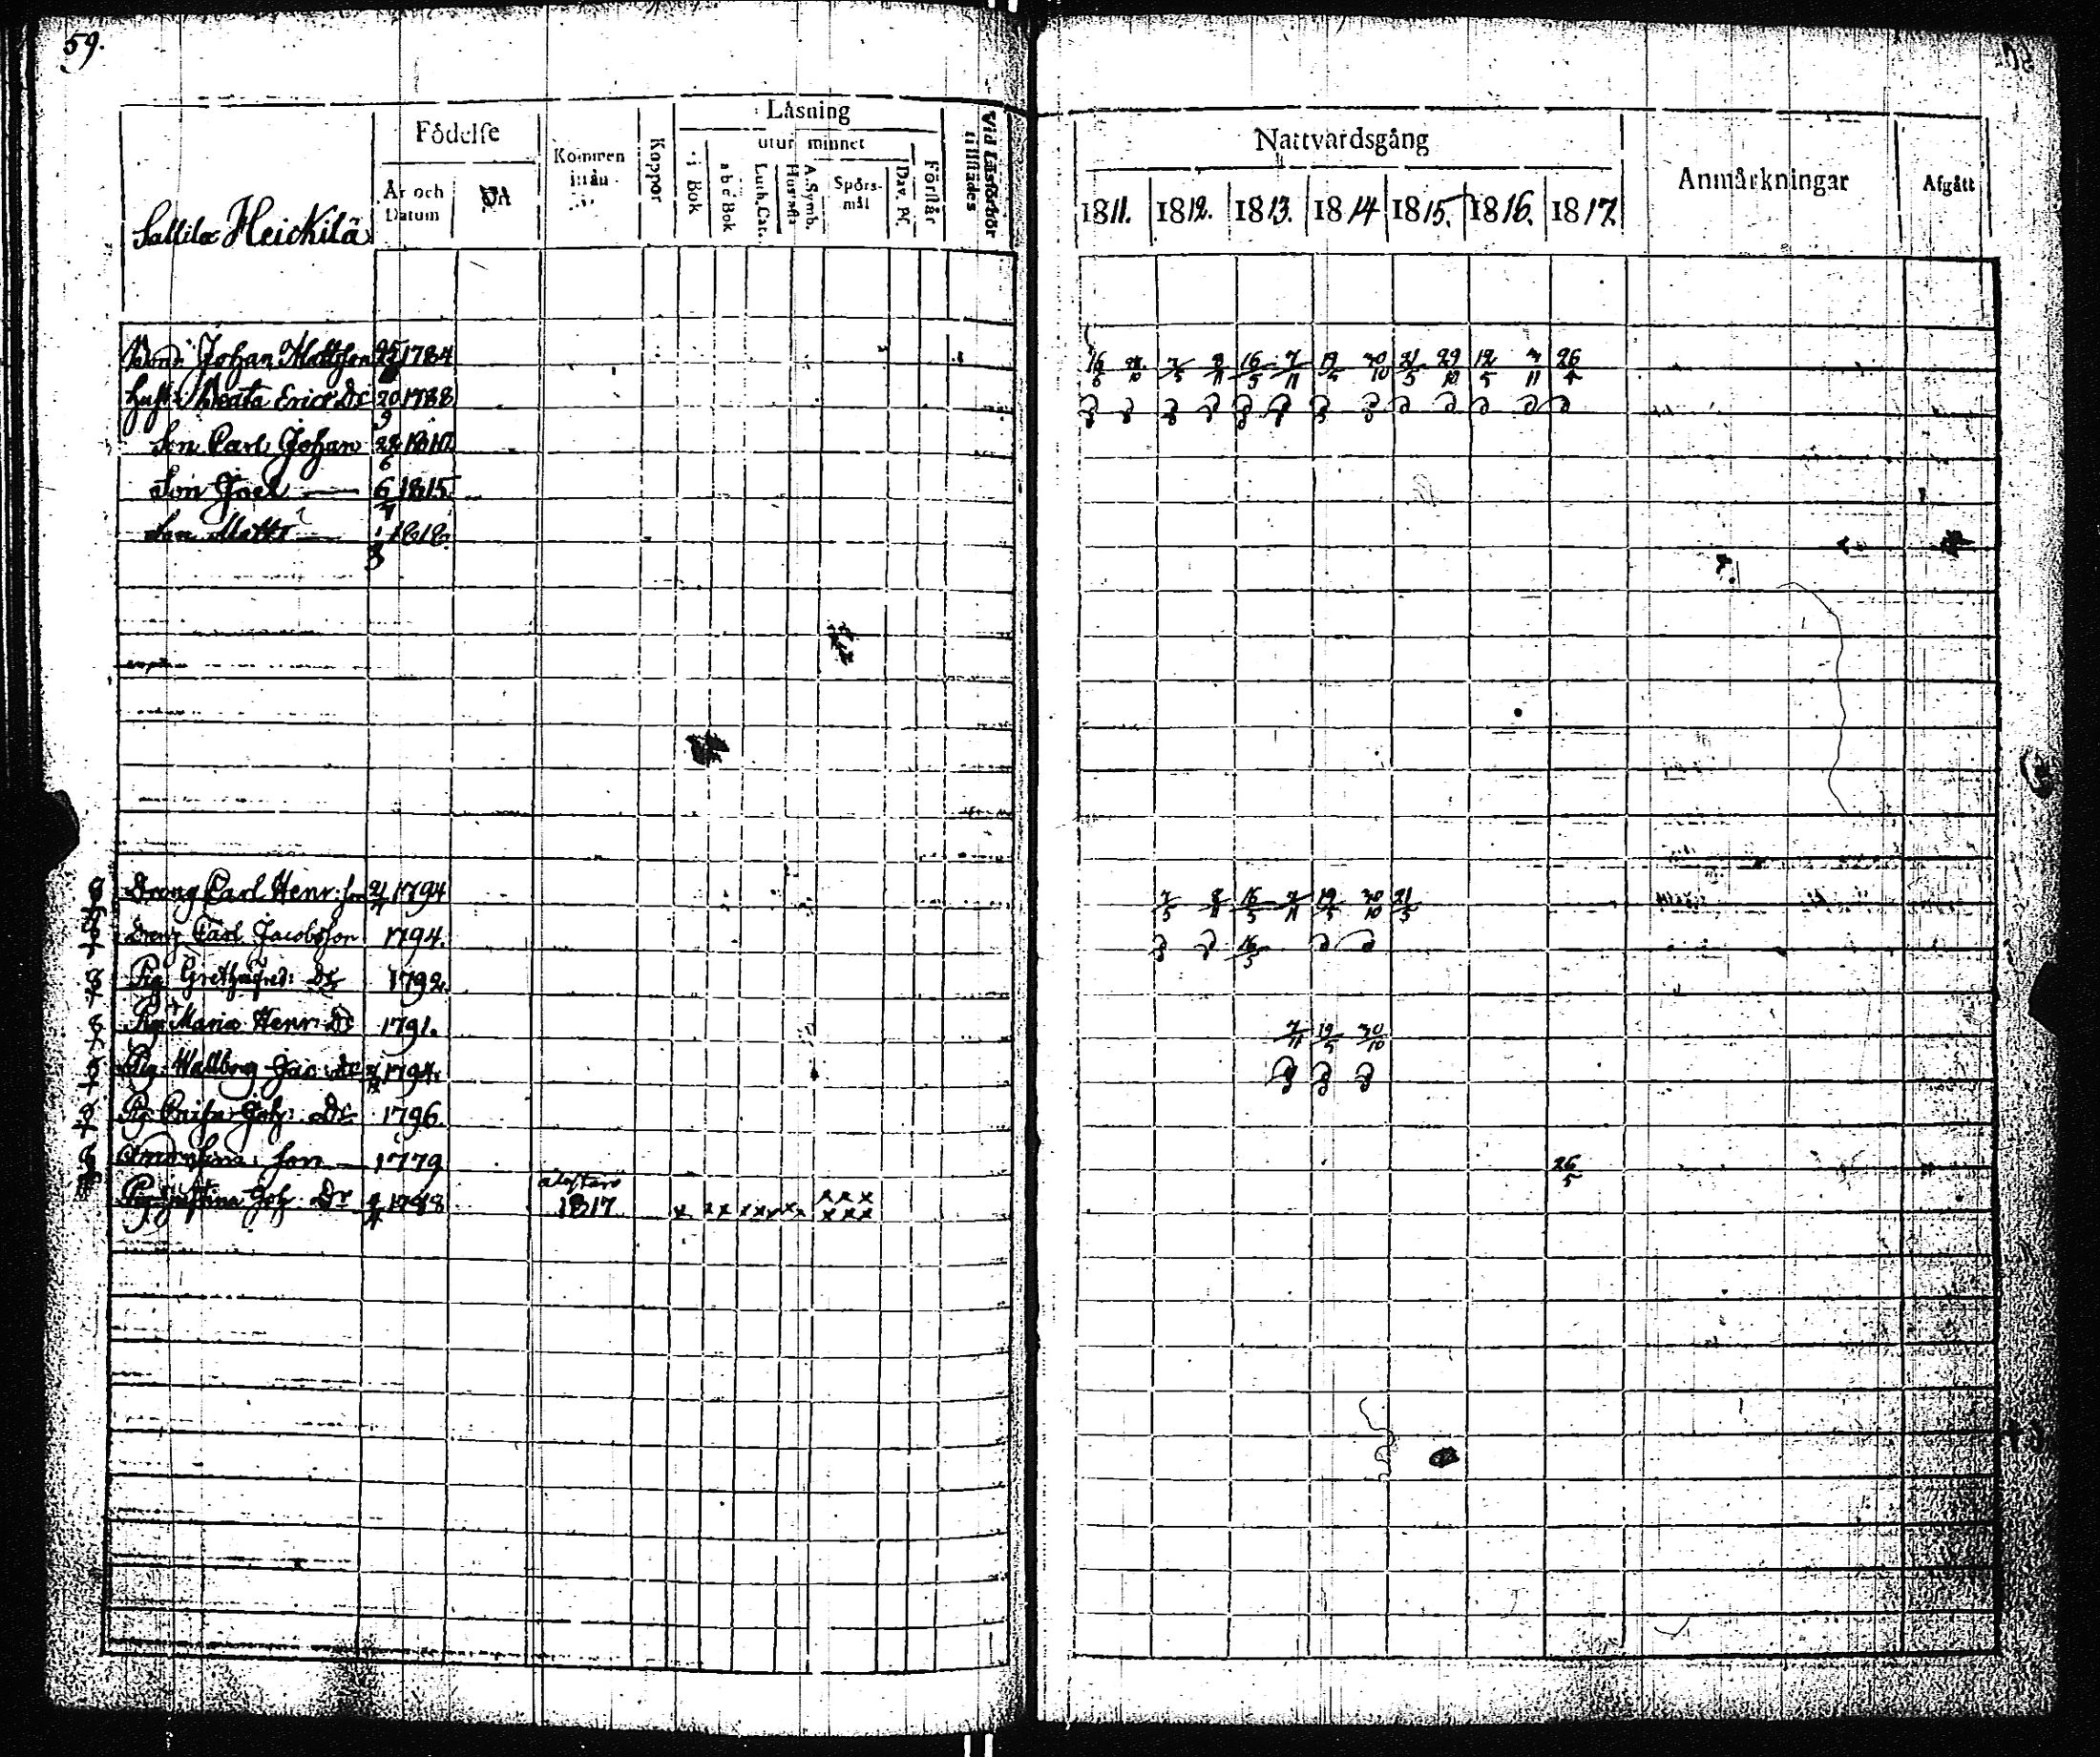 59.
Sallila Heickilä
Födelse
År och Datum
Ort
Kommen ifrån
Koppor
Läsning
utur minnet
i Bok
abc Bok
Luth. Cat.
Hustafla
A. Symb.
Spörsmål
Dav. Ps.
Förstår
Vid Läsförhör tillstädes
Nattvardsgång
1811. 1812. 1813. 1814 1815. 1816. 1817.
Anmärkningar
Afgått
Bond: Johan Mattsson 1784 16/6 7/5 8/11 16/5 7/11 19/5 30/10 21/5 29/10 12/5 26
Hust: Beata Erics Dr 20/9 1788
Son Carl Johan 22/6 1810
Son Joel 6 1815.
Son Matts 1/3 1818.
Dräng Carl Henr: son 1794 7/5 8/11 16/5 7/11 19/5 30/10 21/5
Dreng Carl Jacobsson 1794. 16/5
Pig: Gretha Dr 1792.
Pig: Maria Henr: Dr 1791. 7/11 19/5 30/10
Pig: Wallborg Jac: Dr 1794.
Pig Caisa Joh: Dr 1796.
son 1779 26/5
Pig: Justina Joh: Dr 1817 x xx xxx xx xxx xxx